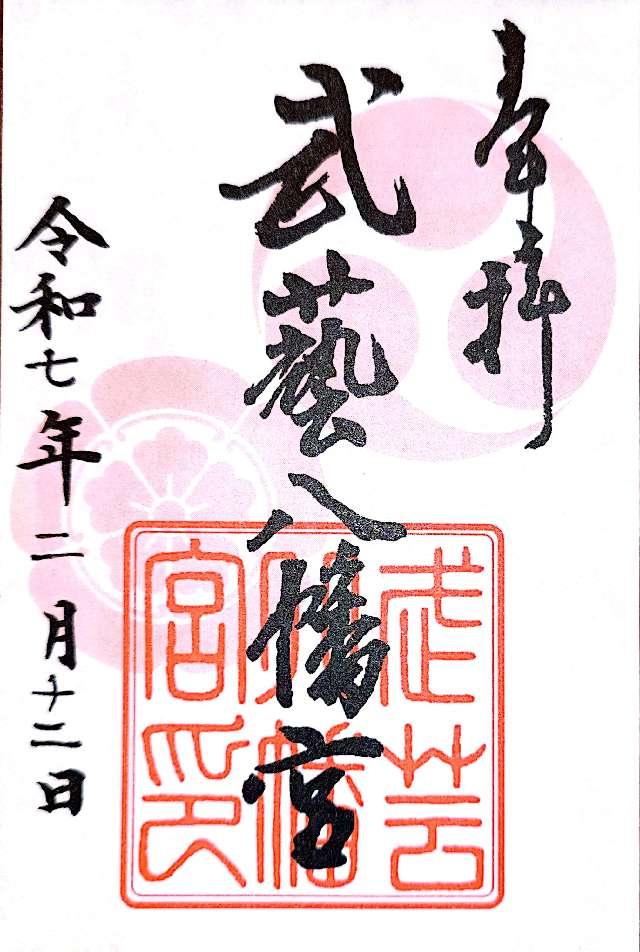 奉拝
武藝八幡宮
武芸
八幡
宮印
令和七年二月十二日